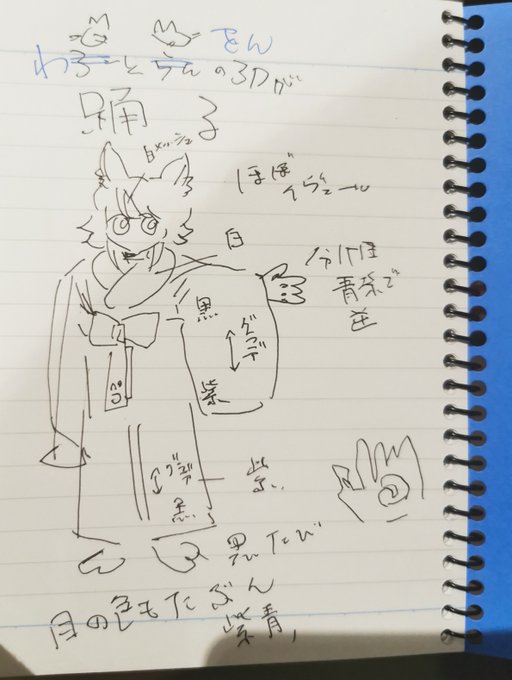 をん
わるーとうんの3Dが
踊る
白メッシュ
ほぼ
イヴェール
白
分け目
青紫で
逆
黒
グラデ
紫
グラデ
黒
紫
黒たび
目の色もたぶん
紫青